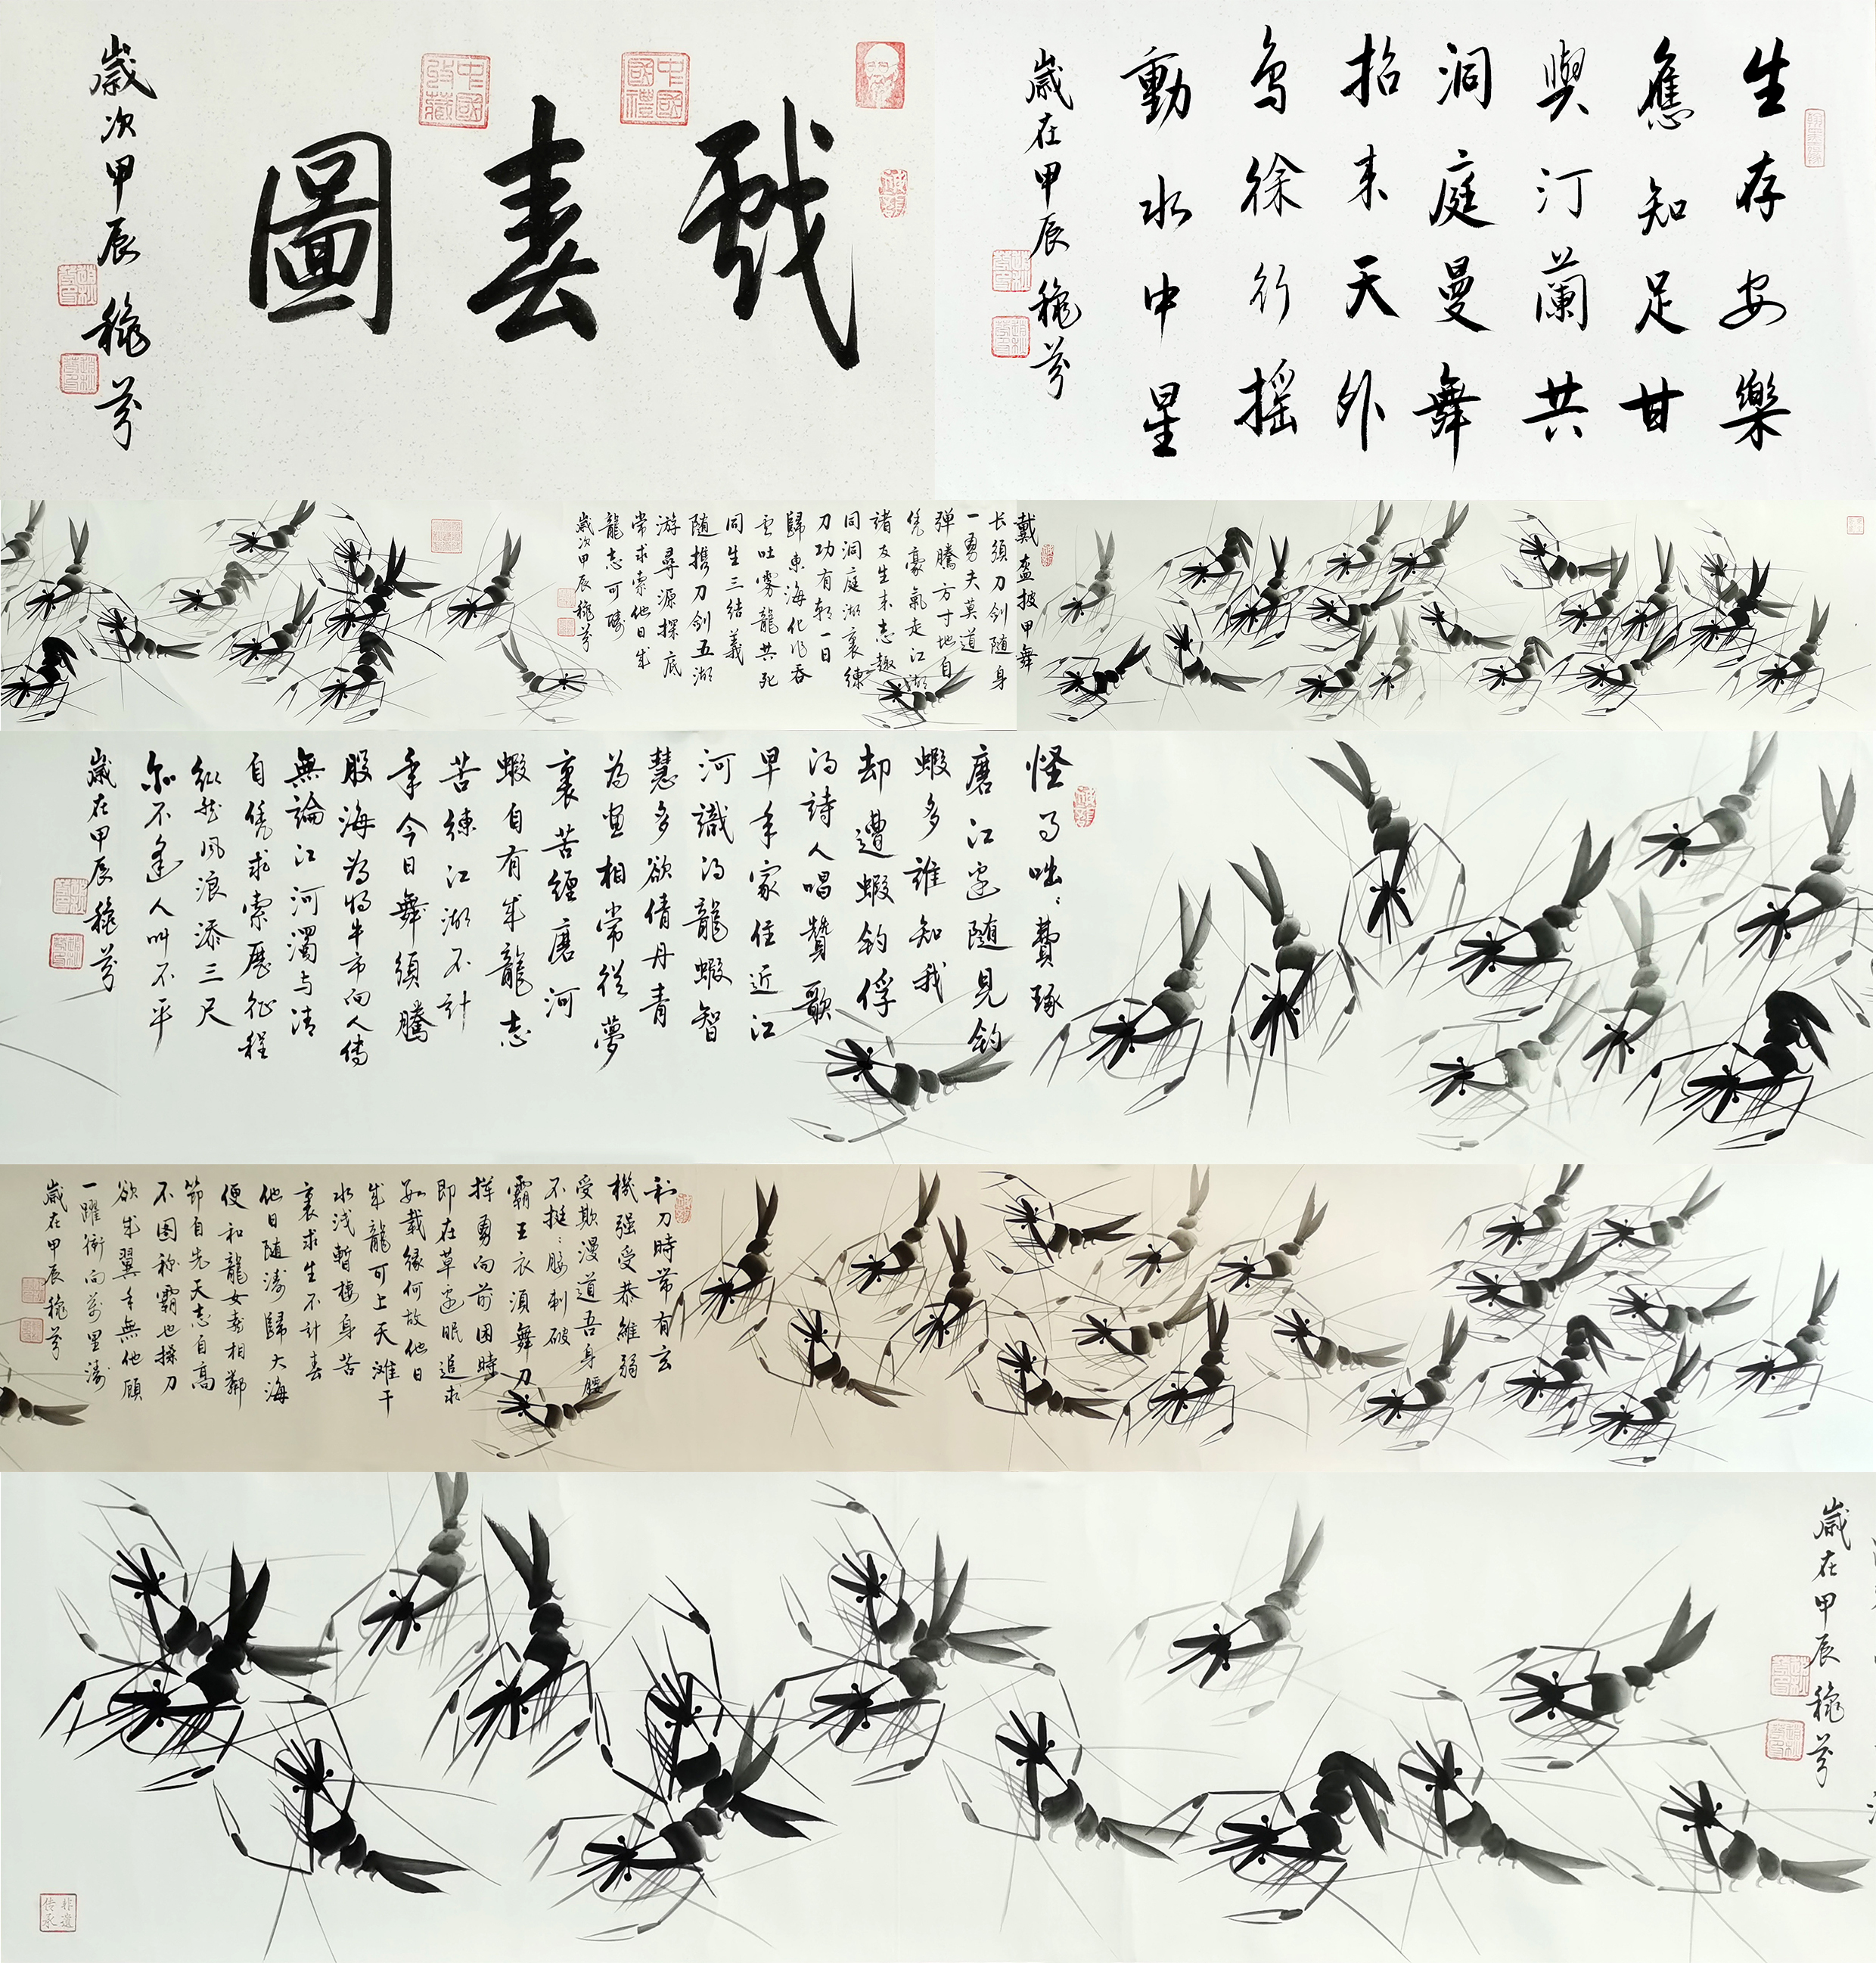 戲春圖
歲次甲辰 穐芬
中國國禮
中國珍藏
生存安樂
應知足甘
與汀蘭共
洞庭曼舞
招來天外
鳥徐行搖
動水中星
歲在甲辰 穐芬
戴盔披甲舞
长須刀剑随身
一勇夫莫道
弹騰方寸地自
凭豪氣走江湖
諸友生来志趣
同洞庭湖裏練
刀功有朝一日
歸東海化作吞
雲吐雾龍共死
同生三结義
随携刀剑五湖
游尋源探底
常求索他日成
龍志可酬
歲次甲辰 穐芬
怪事咄咄費琢
磨江邊随見釣
蝦多誰知我
却遭蝦釣俘
得詩人唱贊歌
早年家住近江
河識得龍蝦智
慧多欲倩丹青
为画相常從夢
裏苦纏磨河
蝦自有成龍志
苦練江湖不計
年今日舞須騰
股海為博牛市向人傳
無論江河濁与清
自凭求索歷征程
纵然风浪添三尺
尔不逢人叫不平
歲在甲辰 穐芬
利刀時常有玄
機强受恭維弱
受欺漫道吾身腰
不挺腰刺破
霸王衣須舞刀
挥勇向前困時
即在草邊眠追求
数載緣何故他日
成龍可上天滩干
水浅暫棲身苦
裏求生不計春
他日随濤歸大海
便和龍女喜相鄰
節自先天志自高
不图称霸也操刀
欲成翼手無他顾
一躍衝向萬里濤
歲在甲辰 穐芬
歲在甲辰 穐芬
非遗传承